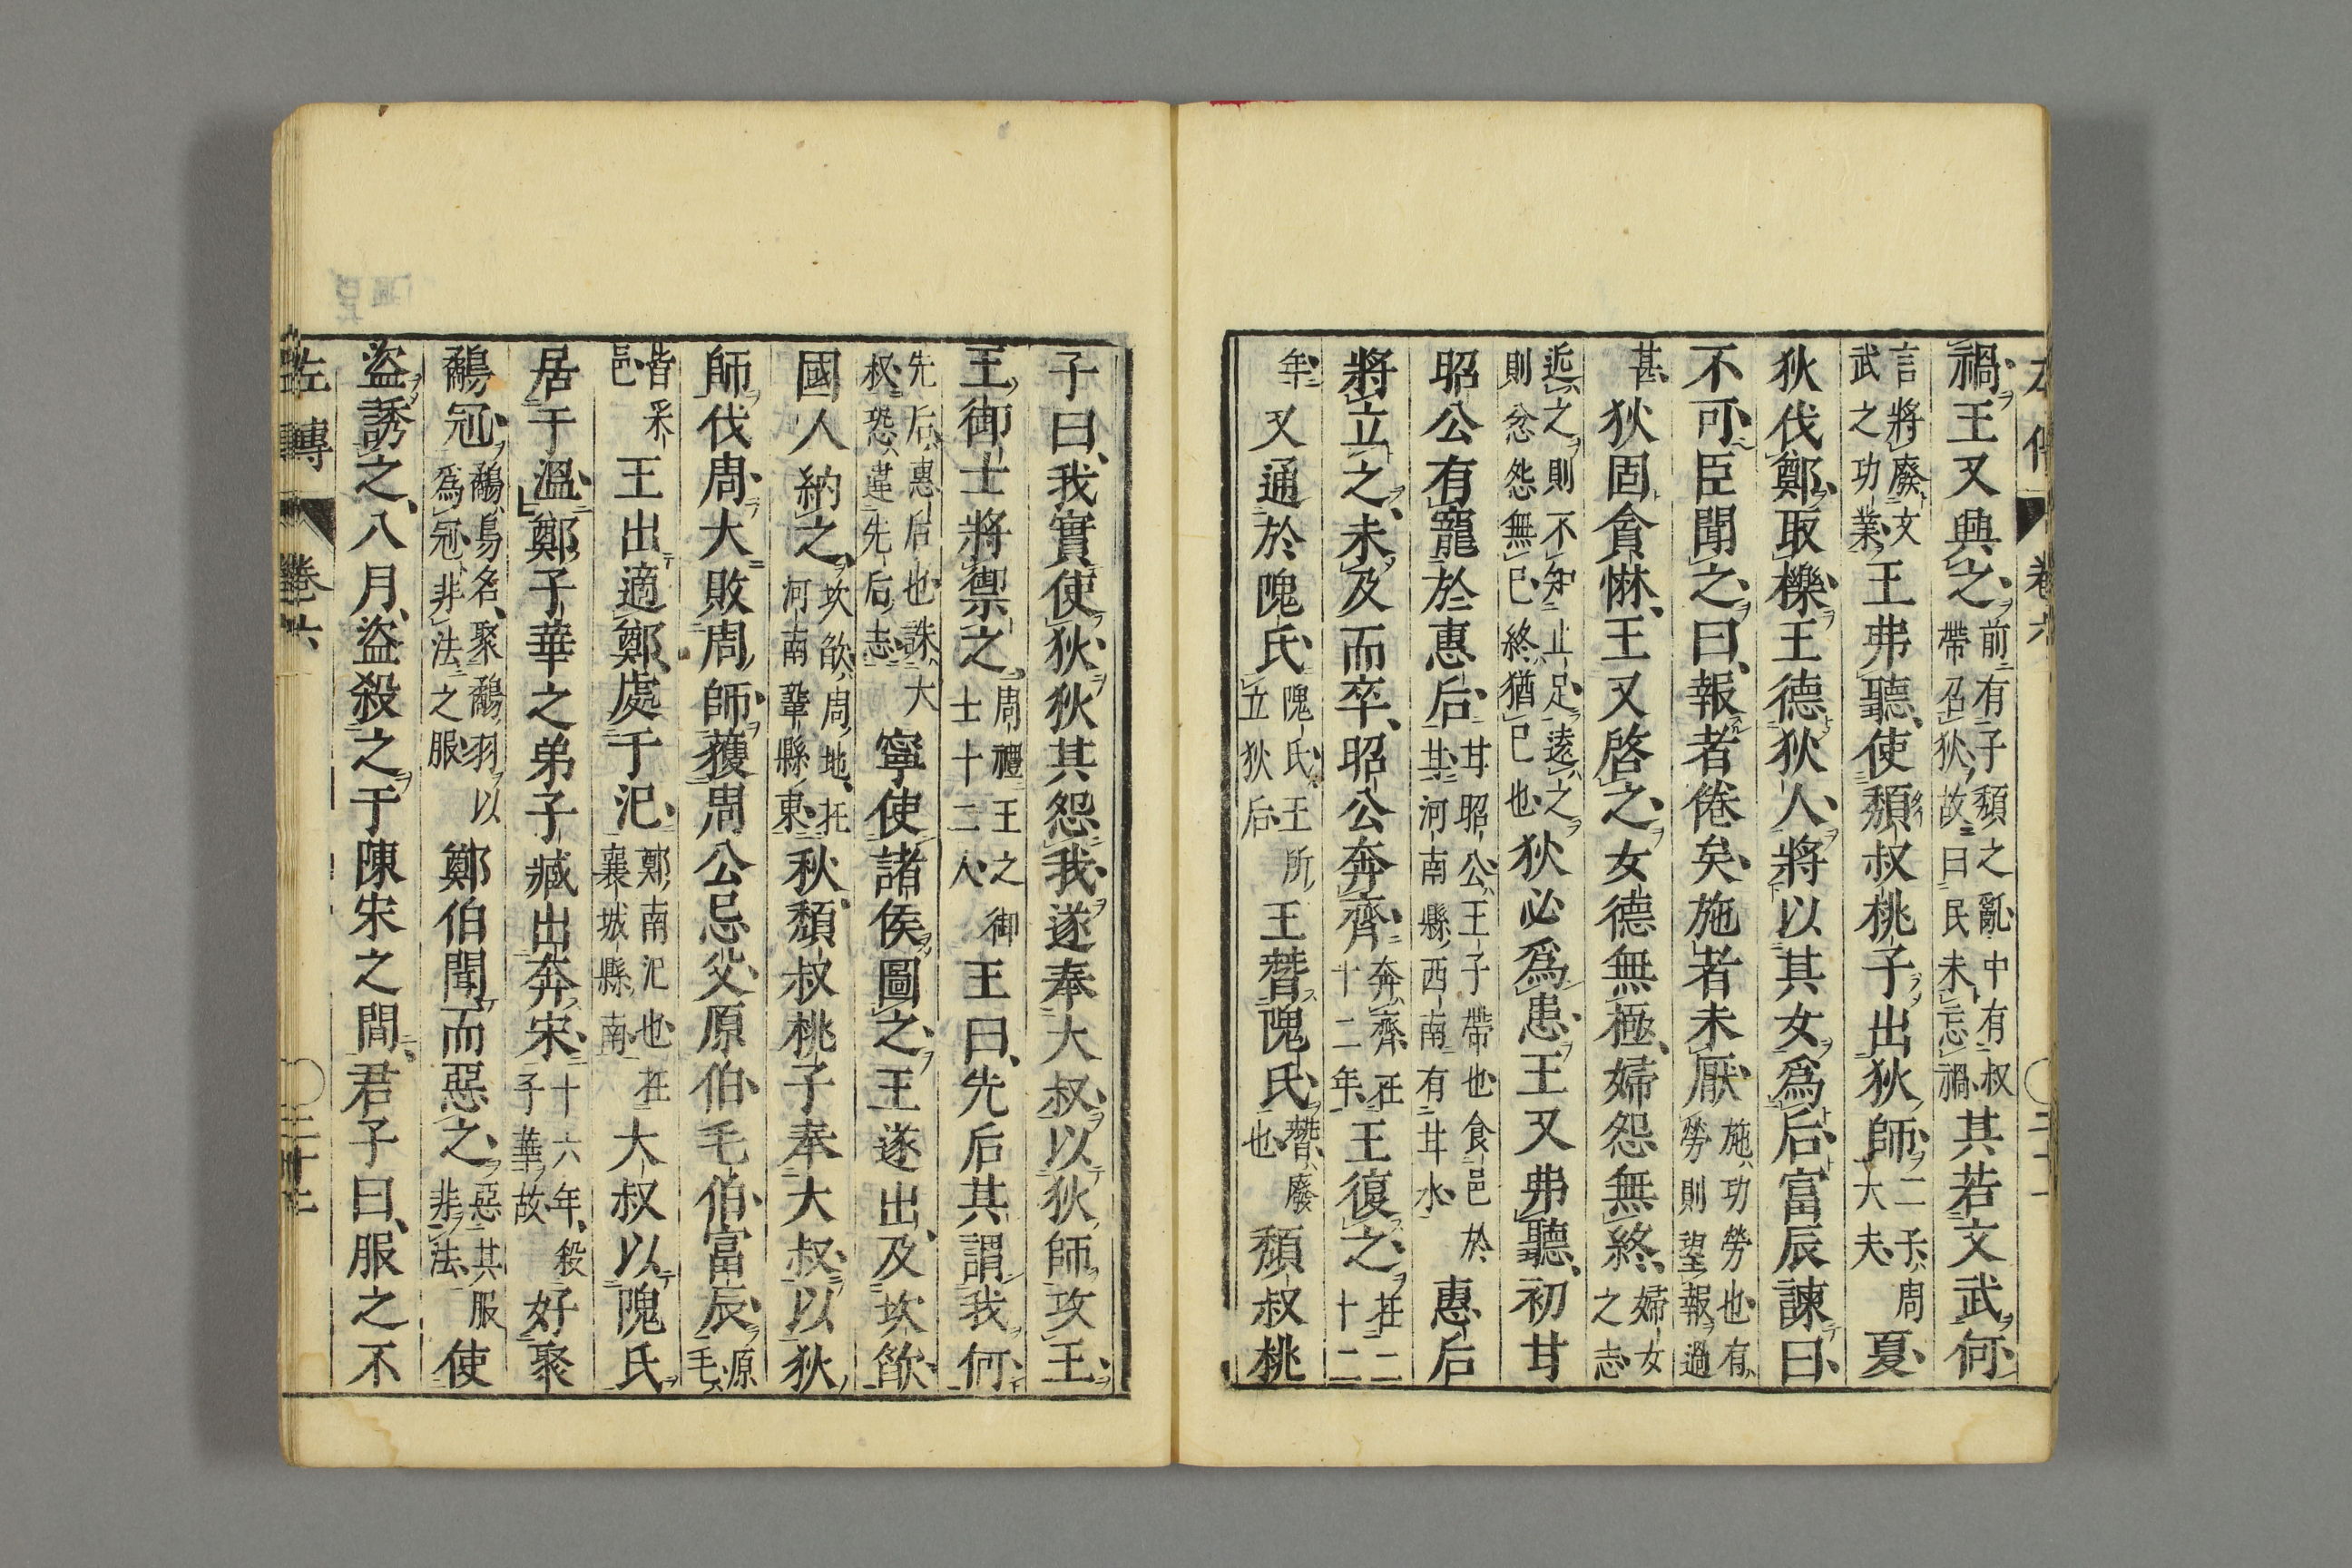 禍王又興之前有子頽之亂中有叔帶召狄故曰民未忘禍其若文武何
言將廢文武之功業王弗聽使頽叔桃子出狄師二子周大夫夏
狄伐鄭取櫟王德狄人將以其女爲后富辰諫曰
不可臣聞之曰報者倦矣施者未厭施功勞也有勞則望報過
甚狄固貪惏王又啓之女德無極婦怨無終婦女之志
近之則不知止足遠之則忿怨無已終猶已也狄必爲患王又弗聽初甘
昭公有寵於惠后甘昭公王子帶也食邑於甘河南縣西南有甘水惠后
將立之未及而卒昭公奔齊奔齊在十二年王復之在二十二
年又通於隗氏隗氏王所立狄后王替隗氏替廢也頽叔桃
子曰我實使狄狄其怨我遂奉大叔以狄師攻王
王御士將禦之周禮王之御士十二人王曰先后其謂我何
先后惠后也誅大叔恐違先后志寧使諸侯圖之王遂出及坎欿
國人納之坎欿周地在河南鞏縣東秋頽叔桃子奉大叔以狄
師伐周大敗周師獲周公忌父原伯毛伯富辰原毛
皆采邑王出適鄭處于氾鄭南氾也在襄城縣南大叔以隗氏
居于溫鄭子華之弟子臧出奔宋十六年殺子華故好聚
鷸冠鷸鳥名聚鷸羽以爲冠非法之服鄭伯聞而惡之惡其服非法使
盜誘之八月盜殺之于陳宋之間君子曰服之不
左傳 卷六